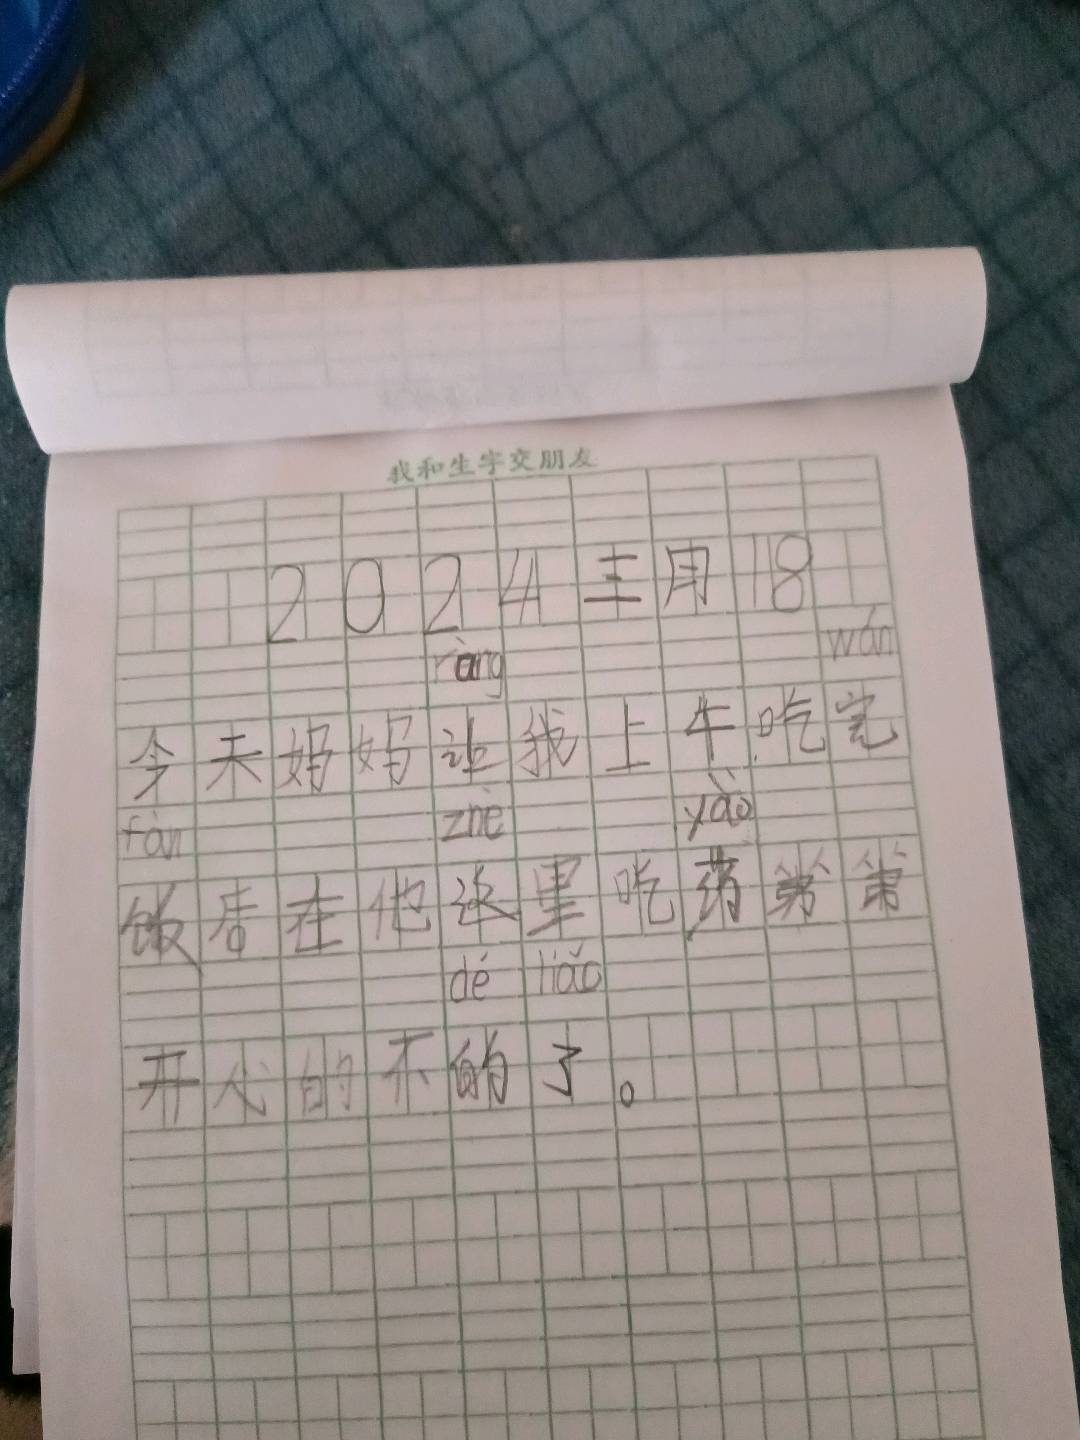 我和生字交朋友
2024三月18
ràng wán
今未妈妈让我上牛吃完
fàn zhè yào
饭店在他这里吃药弟弟
dé liǎo
开心的不的了。